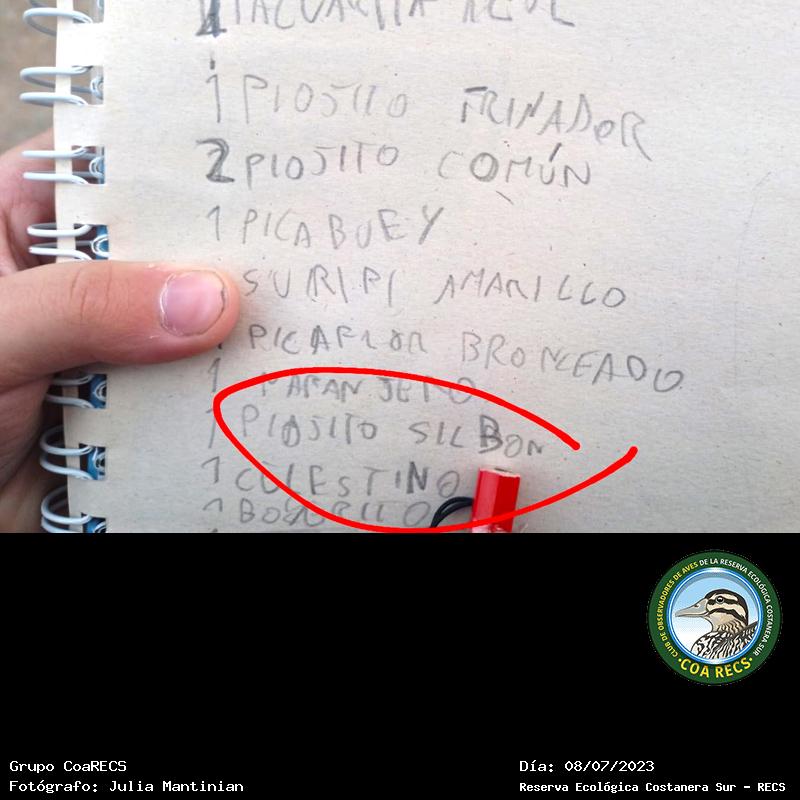 TACUARITA AZUL
1 PIOJITO TRINADOR
2 PIOJITO COMÚN
1 PICABUEY
SURIPI AMARILLO
PICAFLOR BRONCEADO
1 NARANJERO
1 PIOJITO SILBON
1 CELESTINO
1
CLUB DE OBSERVADORES DE AVES DE LA RESERVA ECOLÓGICA COSTANERA SUR
·COA RECS·
Grupo CoaRECS
Fotógrafo: Julia Mantinian
Día: 08/07/2023
Reserva Ecológica Costanera Sur - RECS